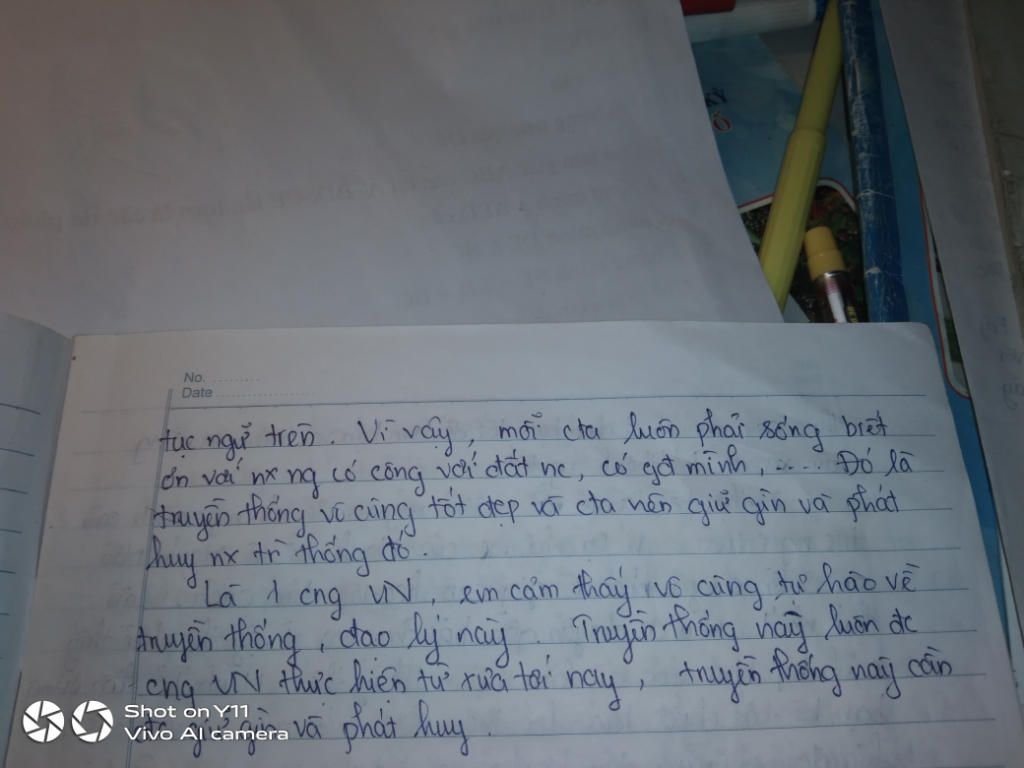 No. ..........
Date ..................
tục ngữ trên. Vì vậy, mỗi cta luôn phải sống biết
ơn với nx ng có công với đất nc, có gđ mình, .... Đó là
truyền thống vô cùng tốt đẹp và cta nên giữ gìn và phát
huy nx tr thống đó.
Là 1 cng VN, em cảm thấy vô cùng tự hào về
truyền thống, đạo lý này. Truyền thống này luôn đc
cng VN thực hiện từ xưa tới nay, truyền thống này cần
đc giữ gìn và phát huy.
Shot on Y11
Vivo AI camera